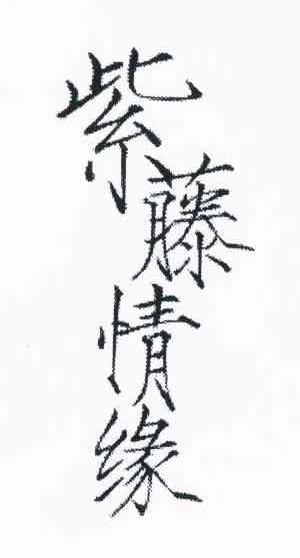 紫藤情缘